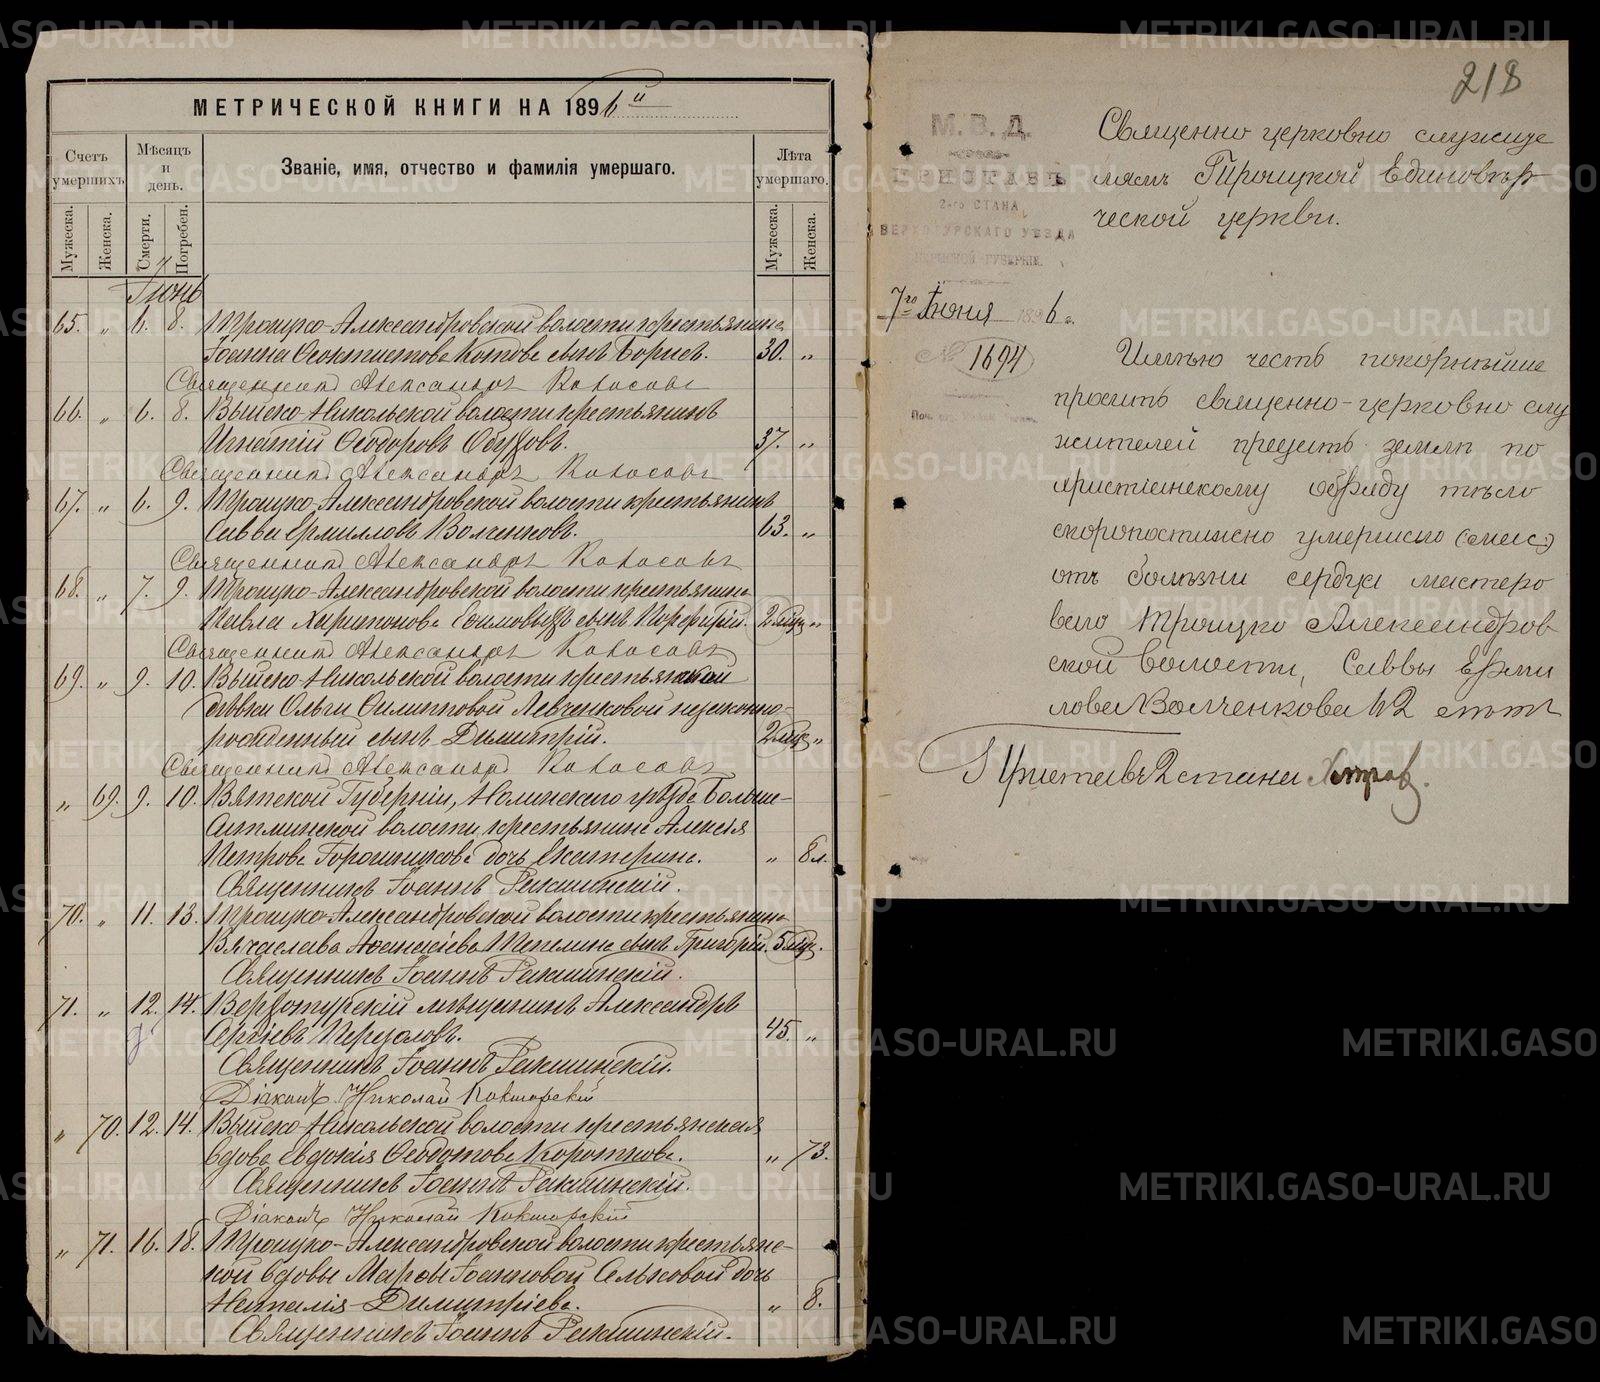 МЕТРИЧЕСКОЙ КНИГИ НА 1896й
Счетъ умершихъ.
Мѣсяцъ и день.
Званіе, имя, отчество и фамилія умершаго.
Лѣта умершаго.
Мужеска.
Женска.
Смерти.
Погребен.
Мужеска.
Женска.
Іюнь
65. „ 6. 8. Троицко-Александровской волости крестьянина
Іоанна Ѳеоктистова Котова сынъ Борисъ. 30. „
Священникъ Александръ Колосовъ
66. „ 6. 8. Выйско-Никольской волости крестьянинъ
Игнатій Ѳеодоровъ Обуховъ. 37. „
Священникъ Александръ Колосовъ
67. „ 6. 9. Троицко-Александровской волости крестьянинъ
Савва Ермиловъ Волченковъ. 63. „
Священникъ Александръ Колосовъ
68. „ 7. 9. Троицко-Александровской волости крестьянина
Павла Харитонова Ефимовыхъ сынъ Порфирій. 2 мѣс. „
Священникъ Александръ Колосовъ
69. „ 9. 10. Выйско-Никольской волости крестьянской
дѣвки Ольги Филипповой Левченковой незаконно-
рожденный сынъ Димитрій. 2 мѣс. „
Священникъ Александръ Колосовъ
„ 69. 9. 10. Вятской Губерніи, Нолинскаго уѣзда Больше-
волости, крестьянина Алексія
Петрова Горошникова дочь Екатерина. „ 8 л.
Священникъ Іоаннъ
70. „ 11. 13. Троицко-Александровской волости крестьянина
Вячеслава Аѳанасіева Шепелина сынъ Григорій. 5 мѣс.
Священникъ Іоаннъ
71. „ 12. 14. Верхотурскій мѣщанинъ Александръ
Сергіевъ Перезоловъ. 45. „
Священникъ Іоаннъ
Діаконъ Николай
„ 70. 12. 14. Выйско-Никольской волости крестьянская
вдова Евдокія Ѳеодотова Короткова. „ 73.
Священникъ Іоаннъ
Діаконъ Николай
„ 71. 16. 18. Троицко-Александровской волости крестьянс-
кой вдовы Марѳы Іоанновой Сельковой дочь
Наталія Димитріева. „ 8.
Священникъ Іоаннъ
218
М. В. Д.
ПРИСТАВЪ
2-го СТАНА
ВЕРХОТУРСКАГО УѢЗДА
ПЕРМСКОЙ ГУБЕРНІИ.
7го Іюня 1896 г.
№ 1694
Священно церковно служите
лямъ Троицкой Единовѣр
ческой церкви.
Имѣю честь покорнѣйше
просить священно-церковно слу
жителей предать землѣ по
христіанскому обряду тѣло
скоропостижно умершаго
отъ болѣзни сердца мастеро
ваго Троицко Александров
ской волости, Саввы Ерми
лова Волченкова 62 лѣтъ
Приставъ 2 стана